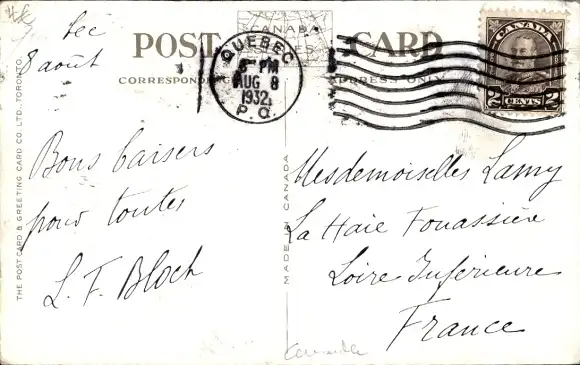 POST CARD
CANADA
CORRESPONDENCE
ADDRESS ONLY
QUEBEC
8 PM
AUG 8
1932
P.Q.
CANADA
2 CENTS 2
8 août
Bons baisers
pour toutes
L. F. Bloch
THE POSTCARD & GREETING CARD CO. LTD., TORONTO.
MADE IN CANADA
Mesdemoiselles Lamy
La Haie Fouassière
Loire Inférieure
France
Canada